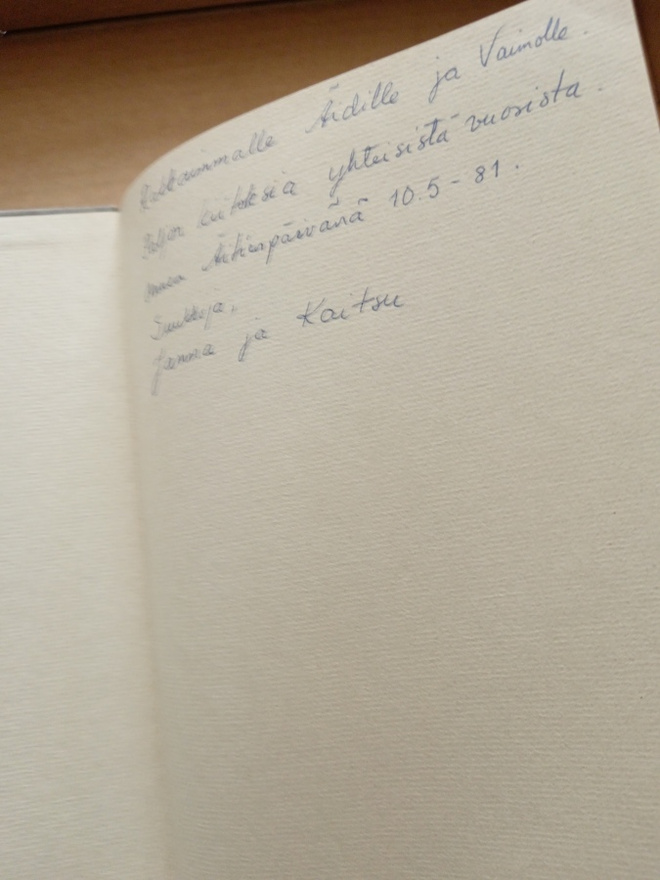 Rakkaimmalle Äidille ja Vaimolle.
Paljon kiitoksia yhteisistä vuosista.
Äitienpäivänä 10.5-81.
Suukkoja,
Janna ja Kaitsu